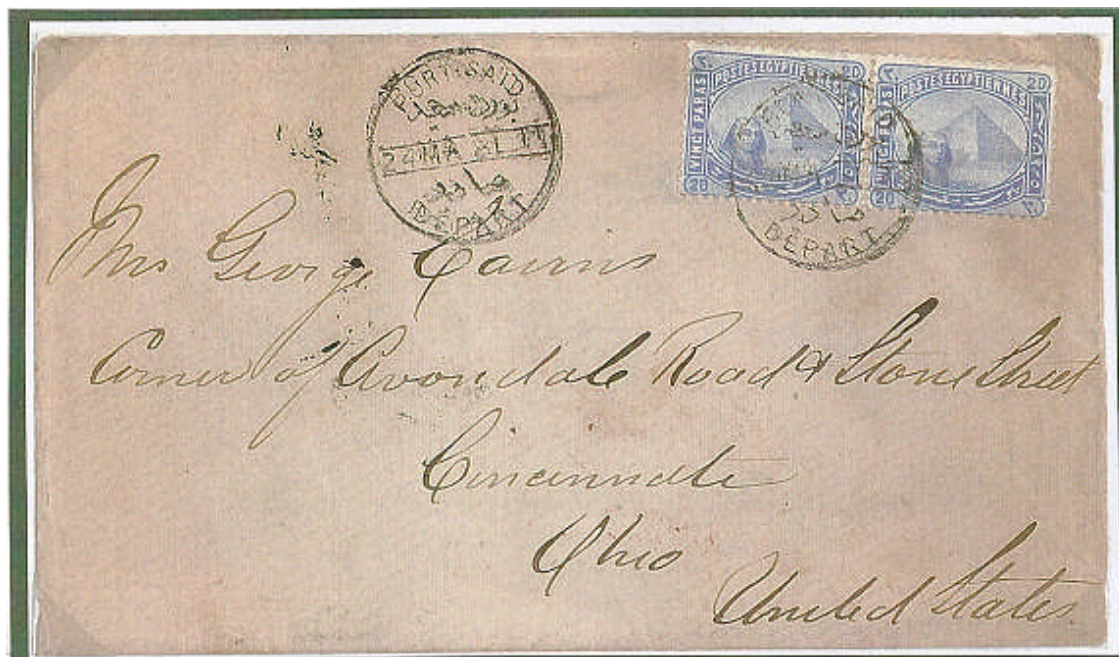 PORT-SAID
بورت سعيد
24 MA 81 T1
صادر
DEPART
POSTES EGYPTIENNES
20
VINGT PARAS
20
POSTES EGYPTIENNES
20
20
صادر
DEPART
Mrs George Cairns
Corner of Avondale Road & Stone Street
Cincinnati
Ohio
United States